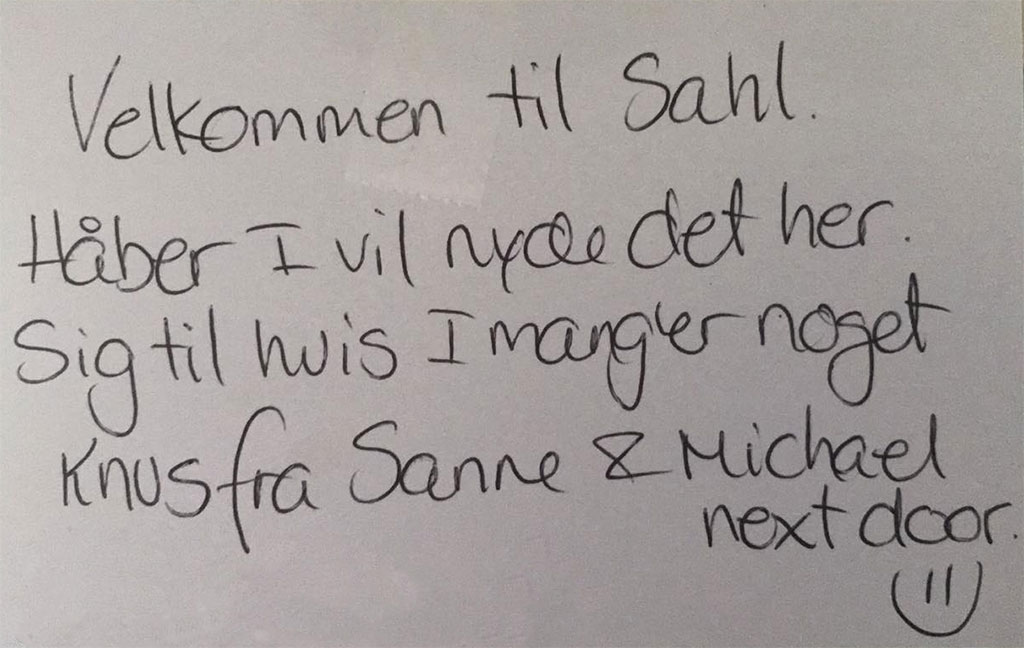 Velkommen til Sahl.
Håber I vil nyde det her.
Sig til hvis I mangler noget
Knus fra Sanne & Michael
next door.